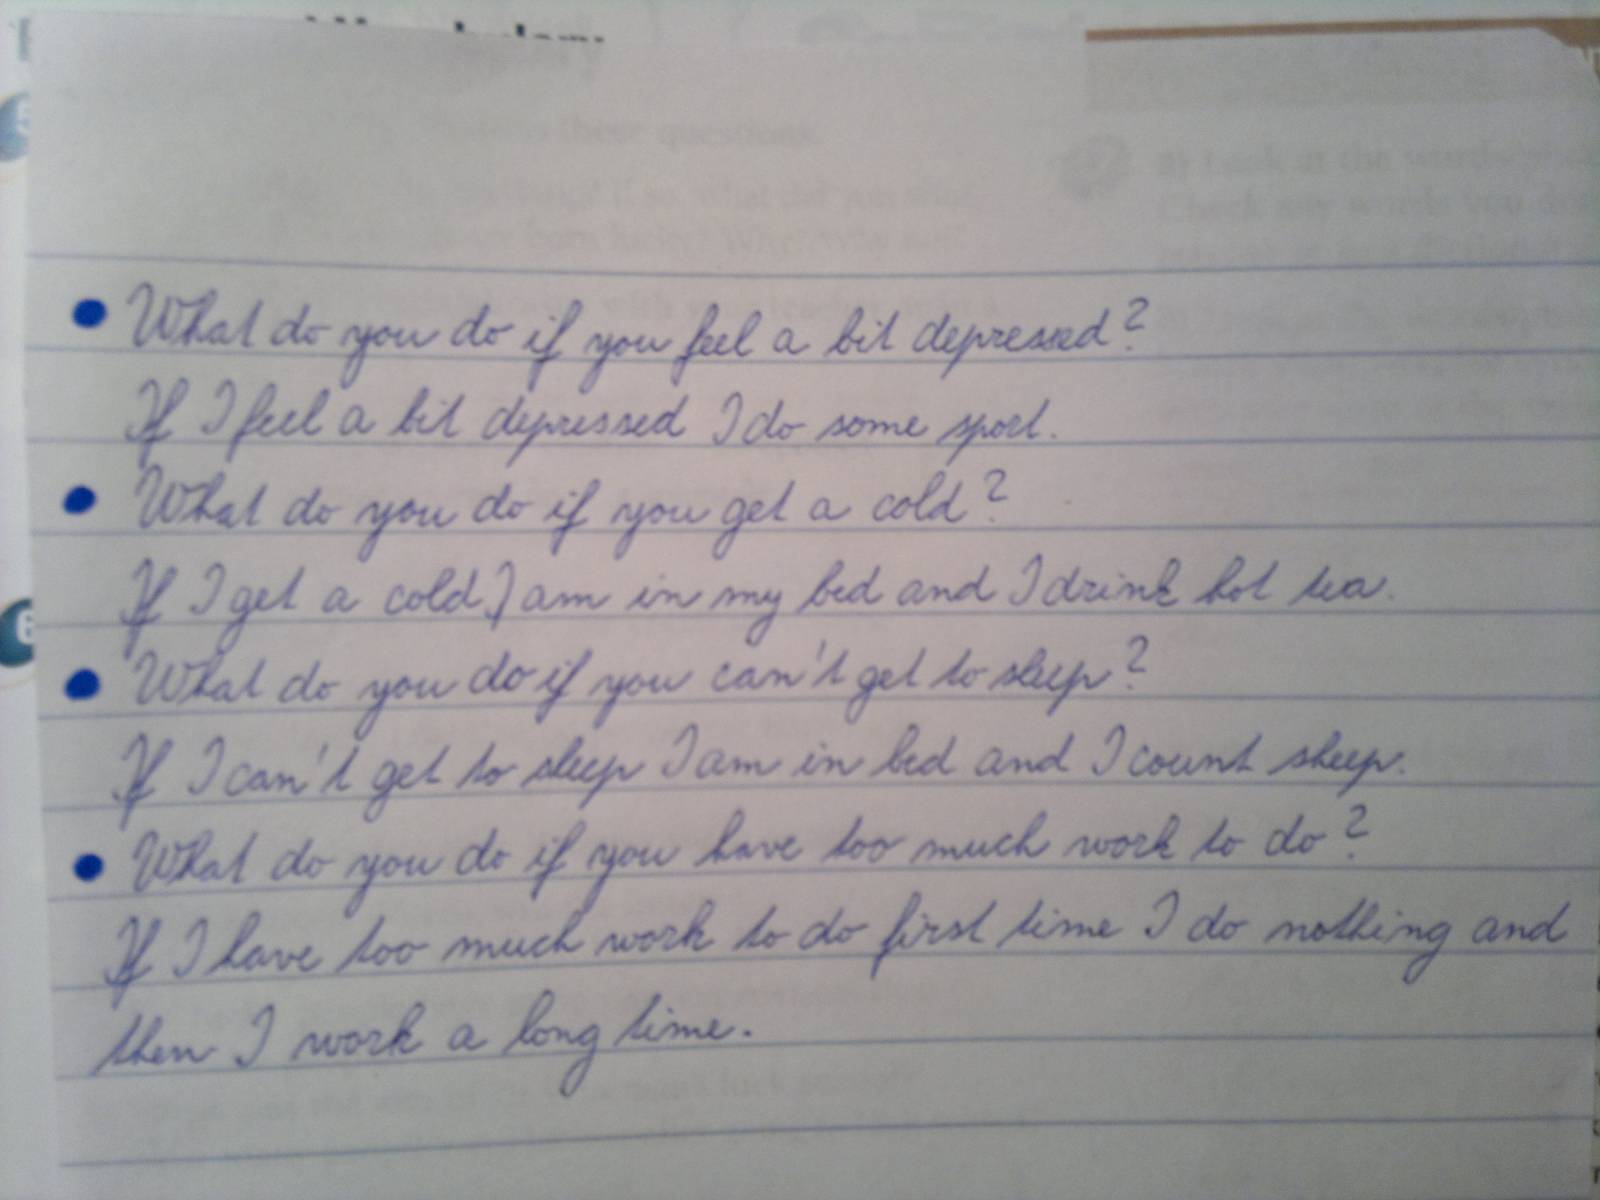 What do you do if you feel a bit depressed?
If I feel a bit depressed I do some sport.
What do you do if you get a cold?
If I get a cold I am in my bed and I drink hot tea.
What do you do if you can't get to sleep?
If I can't get to sleep I am in bed and I count sheep.
What do you do if you have too much work to do?
If I have too much work to do first time I do nothing and
then I work a long time.